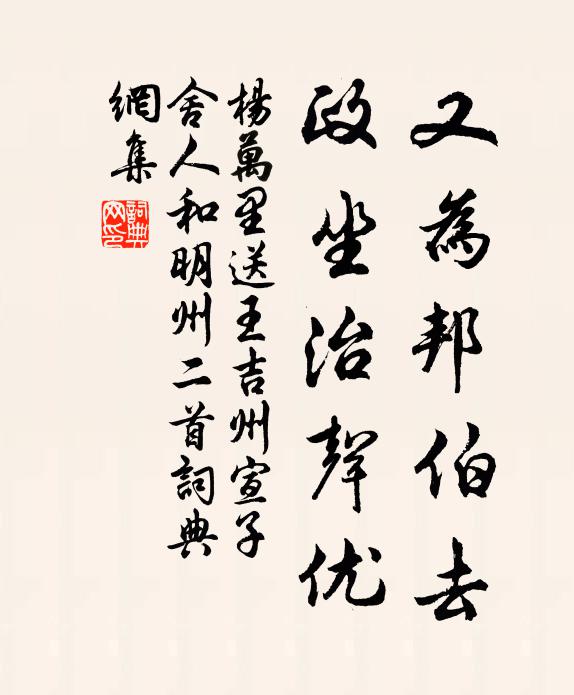 又為邦伯去
政坐治聲优
楊萬里送王吉州宣子
舍人和明州二首詞典
網集
詞典网印